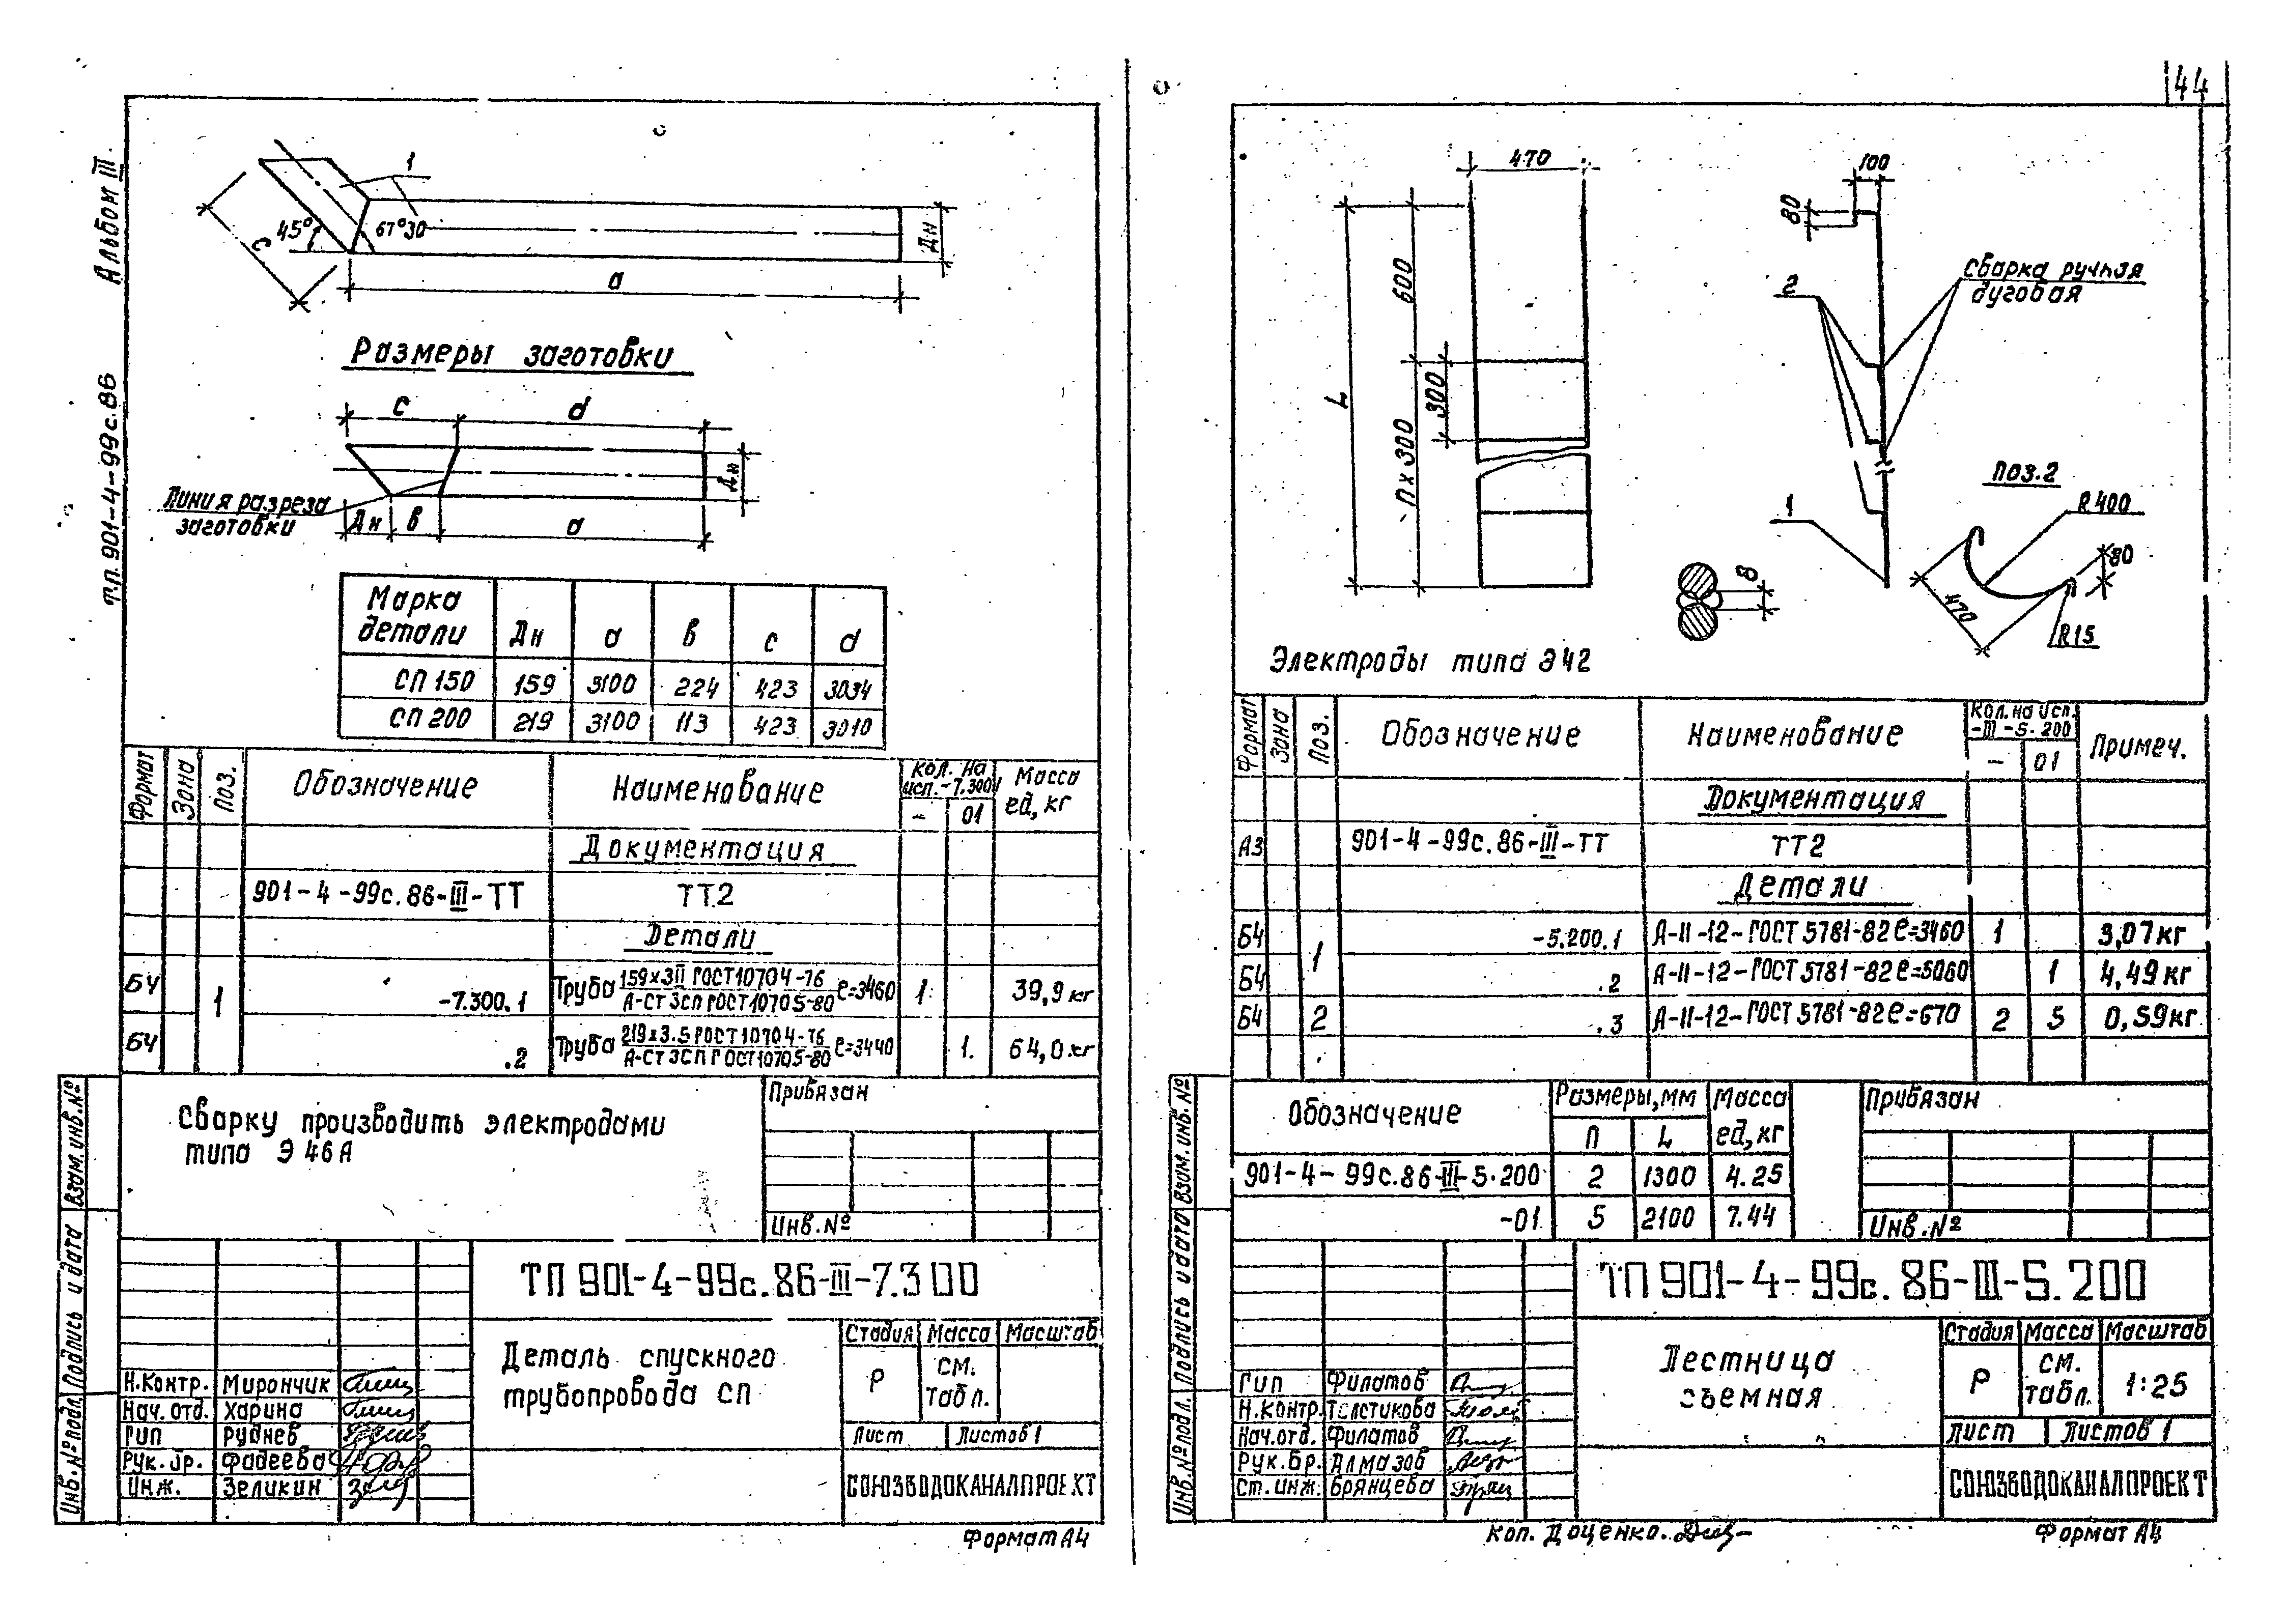 44
Альбом III
т.п. 901-4-99с.86
1
45°
67°30
с
Дн
а
Размеры заготовки
с
d
Дн
Линия разреза
заготовки
Дн
в
а
Марка детали Дн а в с d
СП 150 159 3100 224 423 3034
СП 200 219 3100 113 423 3010
Формат Зона Поз. Обозначение Наименование Кол. на исп.-7.300 Масса ед, кг
- 01
Документация
901-4-99с.86-III-ТТ ТТ2
Детали
БЧ 1 -7.300.1 Труба 159х3П ГОСТ10704-76 / А-СТ3СП ГОСТ10705-80 ℓ=3460 1 39,9 кг
БЧ .2 Труба 219х3.5 ГОСТ10704-76 / А-СТ3СП ГОСТ10705-80 ℓ=3440 1. 64,0 кг
Сварку производить электродами
типа Э46А
Привязан
Инв.№
Взам.инв.№
Подпись и дата
Инв.№подл.
ТП 901-4-99с.86-III-7.300
Деталь спускного
трубопровода СП
Стадия Масса Масштаб
Р см. табл.
Лист Листов 1
СОЮЗВОДОКАНАЛПРОЕКТ
Н.Контр. Мирончик
Нач.отд. Харина
Гип Руднев
Рук.бр. Фадеева
Инж. Зеликин
Формат А4
470
100
80
L
600
300
п х 300
2
сварка ручная
дуговая
1
поз.2
R400
80
470
R15
8
Электроды типа Э42
Формат Зона Поз. Обозначение Наименование Кол. на исп. -III-5.200 Примеч.
- 01
Документация
А3 901-4-99с.86-III-ТТ ТТ2
Детали
Б4 1 -5.200.1 А-II-12-ГОСТ 5781-82 ℓ=3460 1 3,07кг
Б4 .2 А-II-12-ГОСТ 5781-82 ℓ=5060 1 4,49кг
Б4 2 .3 А-II-12-ГОСТ 5781-82 ℓ=670 2 5 0,59кг
Обозначение Размеры, мм Масса ед, кг
п L
901-4-99с.86-III-5.200 2 1300 4.25
-01 5 2100 7.44
Привязан
Инв.№
Взам.инв.№
Подпись и дата
Инв.№подл.
ТП 901-4-99с.86-III-5.200
Лестница
съемная
Стадия Масса Масштаб
Р см. табл. 1:25
Лист Листов 1
СОЮЗВОДОКАНАЛПРОЕКТ
Гип Филатов
Н.контр. Толстикова
Нач.отд. Филатов
Рук.бр. Алмазов
Ст.инж. Брянцева
Коп. Доценко
Формат А4